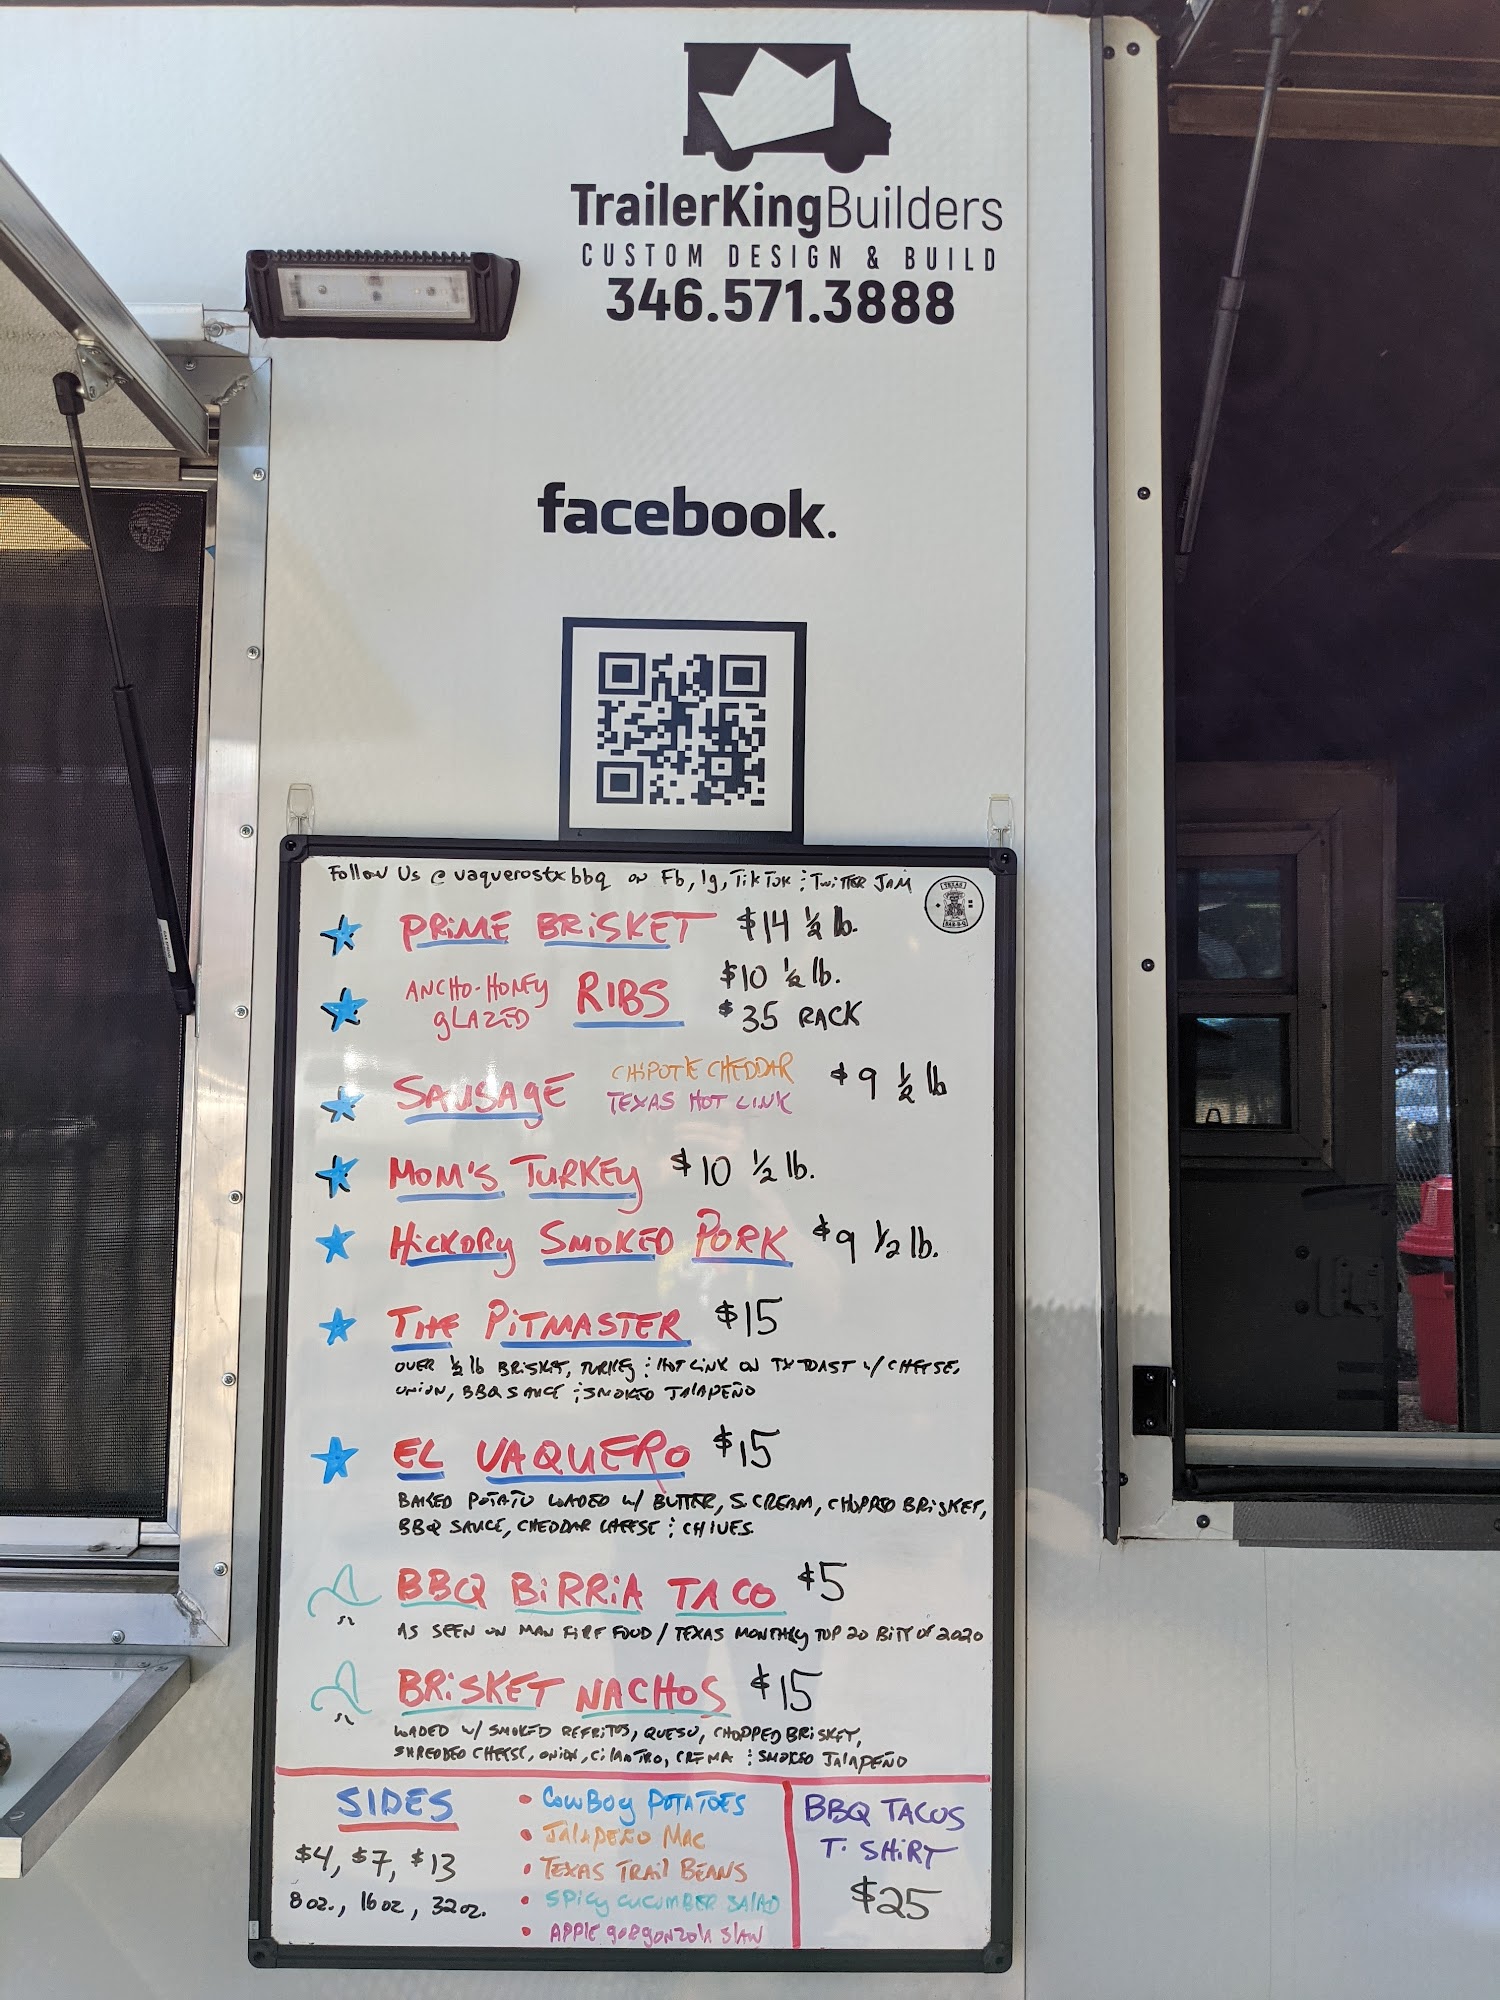 TrailerKingBuilders
CUSTOM DESIGN & BUILD
346.571.3888
facebook.
Follow Us @vaquerostxbbq on Fb, Ig, TikTok & Twitter Jam
TEXAS
BAR-B-Q
PRIME BRISKET $14 ½ lb.
ANCHO-HONEY GLAZED RIBS $10 ½ lb.
$35 RACK
SAUSAGE CHIPOTLE CHEDDAR $9 ½ lb
TEXAS HOT LINK
MOM'S TURKEY $10 ½ lb.
HICKORY SMOKED PORK $9 ½ lb.
THE PITMASTER $15
OVER ½ lb BRISKET, TURKEY & HOT LINK ON TX TOAST w/ CHEESE,
ONION, BBQ SAUCE & SMOKED JALAPEÑO
EL VAQUERO $15
BAKED POTATO LOADED w/ BUTTER, S. CREAM, CHOPPED BRISKET,
BBQ SAUCE, CHEDDAR CHEESE & CHIVES
BBQ BIRRIA TACO $5
AS SEEN ON MAN FIRE FOOD / TEXAS MONTHLY TOP 20 BITE OF 2020
BRISKET NACHOS $15
LOADED w/ SMOKED REFRITOS, QUESO, CHOPPED BRISKET,
SHREDDED CHEESE, ONION, CILANTRO, CREMA & SMOKED JALAPEÑO
SIDES
$4, $7, $13
8 oz., 16 oz, 32 oz.
• COWBOY POTATOES
• JALAPEÑO MAC
• TEXAS TRAIL BEANS
• SPICY CUCUMBER SALAD
• APPLE GORGONZOLA SLAW
BBQ TACOS
T-SHIRT
$25